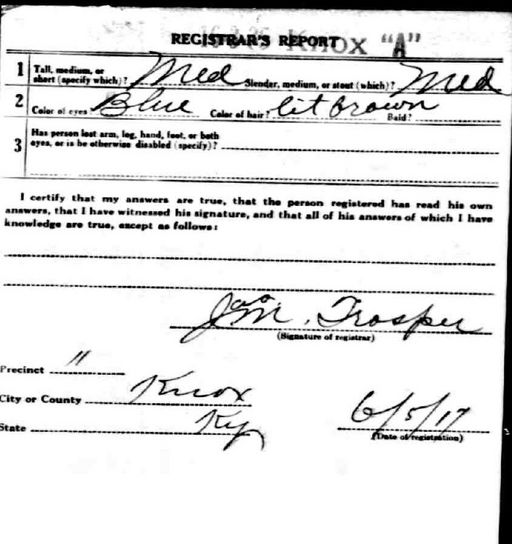 REGISTRAR'S REPORT KNOX "A"
1 Tall, medium, or short (specify which)? Med Slender, medium, or stout (which)? Med
2 Color of eyes? Blue Color of hair? lit brown Bald?
3 Has person lost arm, leg, hand, foot, or both eyes, or is he otherwise disabled (specify)?
I certify that my answers are true, that the person registered has read his own
answers, that I have witnessed his signature, and that all of his answers of which I have
knowledge are true, except as follows:
Jas M. Trosper
(Signature of registrar)
Precinct 11
City or County Knox
State Ky
6/5/17
(Date of registration)